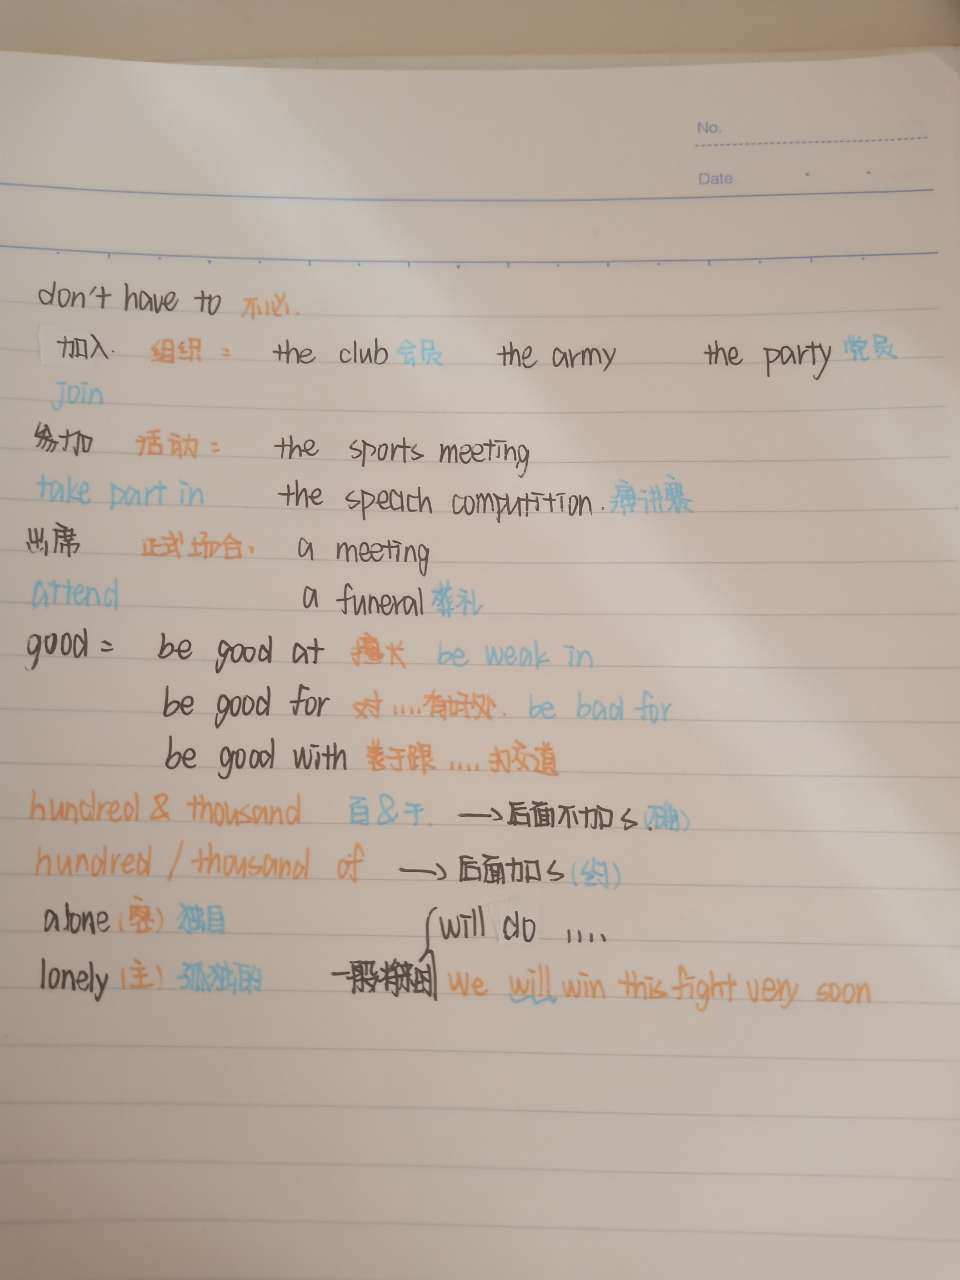 No.
Date
don't have to 不必.
加入. 组织： the club 会员 the army the party 党员
join
参加 活动： the sports meeting
take part in the speach computition. 演讲赛
出席 正式场合： a meeting
attend a funeral 葬礼
good = be good at 擅长 be weak in
be good for 对....有好处. be bad for
be good with 善于跟....打交道
hundred & thousand 百&千. → 后面不加s.(确)
hundred / thousand of → 后面加s(约)
alone (客) 独自 will do ....
lonely (主) 孤独的 一般将来时 We will win this fight very soon